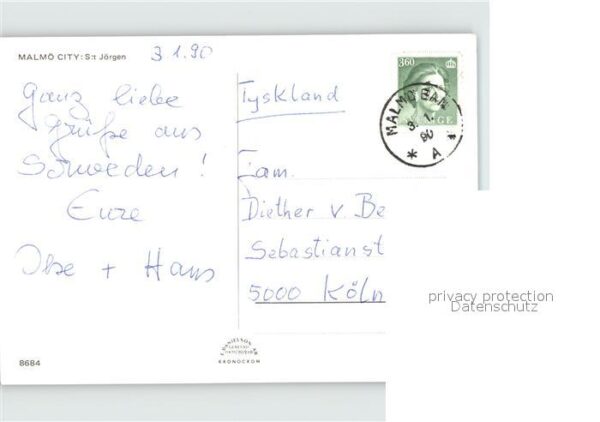 MALMÖ CITY: S:t Jörgen
3 1.90
Ganz liebe
Grüße aus
Schweden!
Eure
Ilse + Hans
Tyskland
Fam.
Diether v. Be
Sebastianst
5000 Köln
360
SVERIGE
MALMÖ BAN
3. 1.
90
* A *
privacy protection
Datenschutz
8684
KRONOCROM